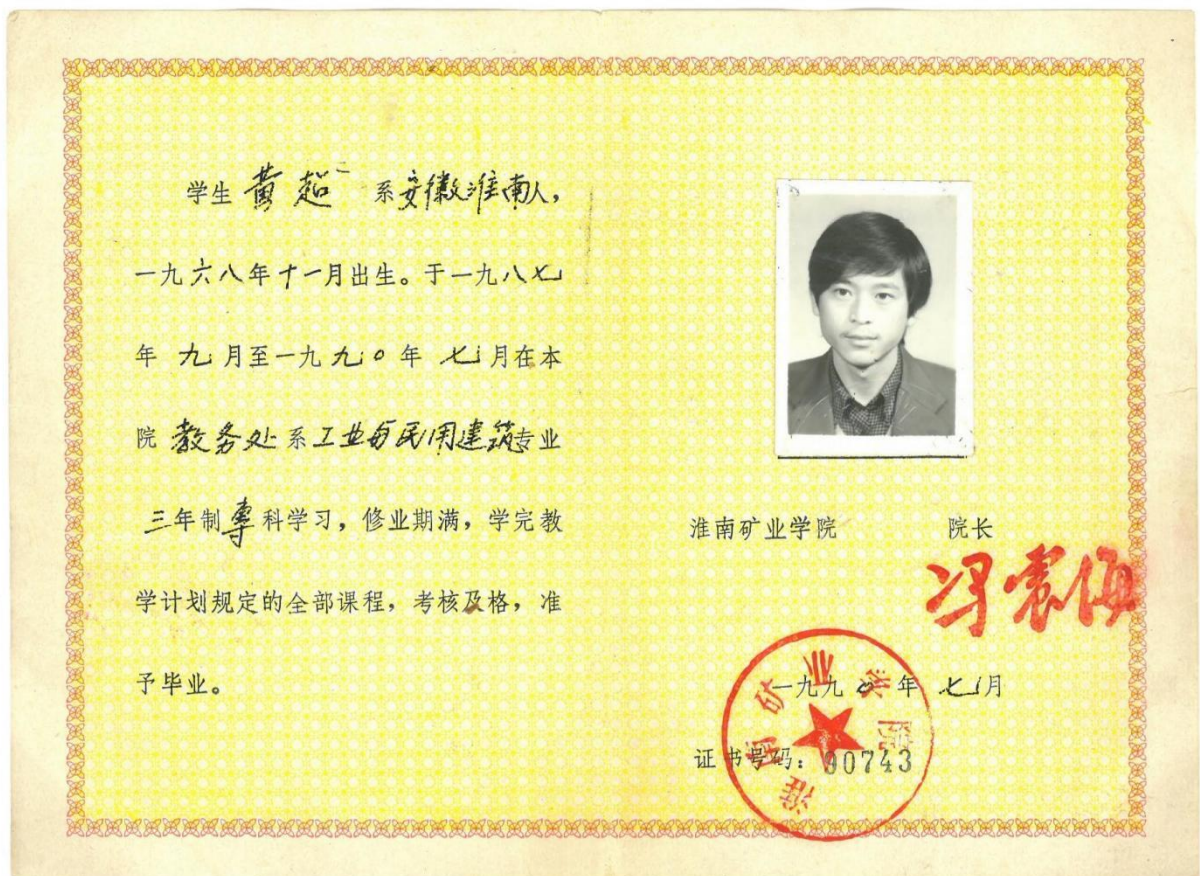 学生 黄超 系安徽淮南人，
一九六八年十一月出生。于一九八七
年 九月至一九九〇年 七月在本
院 教务处系工业与民用建筑专业
三年制专科学习，修业期满，学完教
学计划规定的全部课程，考核及格，准
予毕业。
淮南矿业学院 院长
冯震海
一九九〇年 七月
证书号码：90743
淮南矿业学院